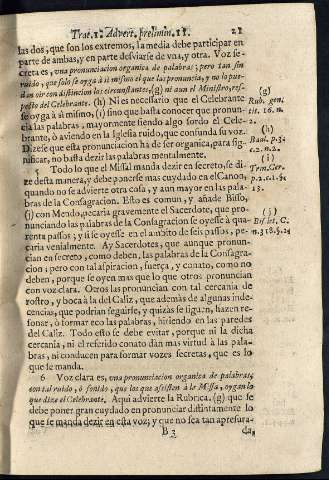 Trat. 1. Advert. prelimin. 11. 21
las dos, que son los extremos, la media debe participar en
parte de ambas, y en parte desviarse de vna, y otra. Voz se-
creta es, vna pronunciacion organica de palabras; pero tan sin
ruido, que solo se oyga à si mismo el que las pronuncia, y no lo pue-
dan oir con distincion los circunstantes, (g) ni aun el Ministro, res-
pecto del Celebrante. (h) Ni es necesario que el Celebrante
se oyga à si mismo, (i) sino que basta conocer que pronun-
cia las palabras, mayormente siendo algo sordo el Cele-
brante, ò aviendo en la Iglesia ruido, que confunda su voz.
Dizese que esta pronunciacion ha de ser organica, para sig-
nificar, no basta dezir las palabras mentalmente.
5 Todo lo que el Missal manda dezir en secreto, se di-
ze desta manera, y debe ponerse mas cuydado en el Canon,
quando no se advierte otra cosa, y aun mayor en las pala-
bras de la Consagracion. Esto es comun, y añade Bisso,
(j) con Mendo, pecaria gravemente el Sacerdote, que pro-
nunciando las palabras de la Consagracion se oyesse à qua-
renta passos; y si se oyesse en el ambito de seis passos, pe-
caria venialmente. Ay Sacerdotes, que aunque pronun-
cian en secreto, como deben, las palabras de la Consagra-
cion; pero con tal aspiracion, fuerça, y conato, como no
deben, porque se oyen mas que lo que otros pronuncian
con voz clara. Otros las pronuncian con tal cercania de
rostro, y boca à la del Caliz, que además de algunas inde-
cencias, que podrian seguirse, y quizas se siguen, hazen re-
sonar, ò formar eco las palabras, hiriendo en las paredes
del Caliz. Todo esto se debe evitar, porque ni la dicha
cercania, ni el referido conato dàn mas virtud à las pala-
bras, ni conducen para formar vozes secretas, que es lo
que se manda.
6 Voz clara es, vna pronunciacion organica de palabras,
con tal ruido, ò sonido, que los que assisten à la Missa, oygan lo
que dize el Celebrante. Aqui advierte la Rubrica, (g) que se
debe poner gran cuydado en pronunciar distintamente lo
que se manda dezir en esta voz; y que no sea tan apresura-
B 3 da,
(g)
Rub. gen.
tit. 16. n.
(h)
Baul. p. 3.
c. 2. n. 2.
(i)
Tem. Cer.
p. 2. c. 1. §.
13.
(j)
Bis. let. C.
n. 318. §. 24